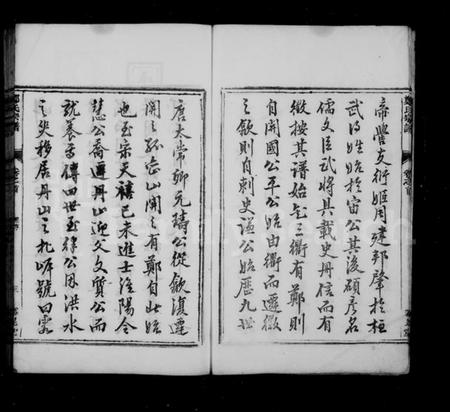 帝嚳支衍姬周建邦肇於桓
武得姓始於宙公其後碩彥名
儒文臣武將具載史冊信而有
徵按其譜始缸三衢有鄭則
自開國公平公始由衢而遷徽
之歙則自刺史溫公始歷九世
唐太常卿元璹公從歙復遷
開之孫岙山開之有鄭自此始
也至宋天禧己未進士涇陽令
慧公喬遷丹山迎父文質公而
就養焉傳四世至律公因洪水
之災移居丹山之北岸號曰雲
鄭氏宗譜